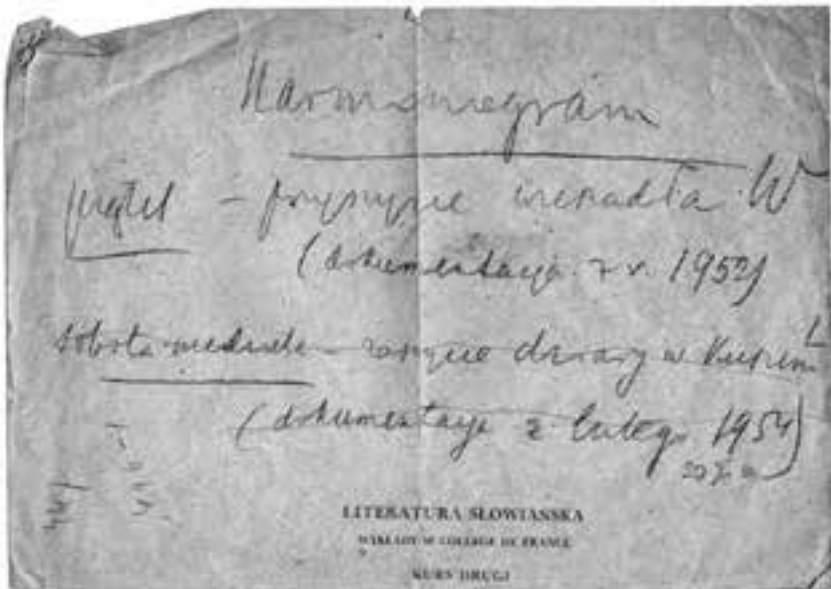 Harmonogram
piątek – przyszycie wieszadła W
(dokumentacja z r. 1952)
sobota-niedziela – zaszycie dziury w
(dokumentacja z lutego 1954)
LITERATURA SŁOWIAŃSKA
WYKŁADY W COLLEGE DE FRANCE
KURS DRUGI